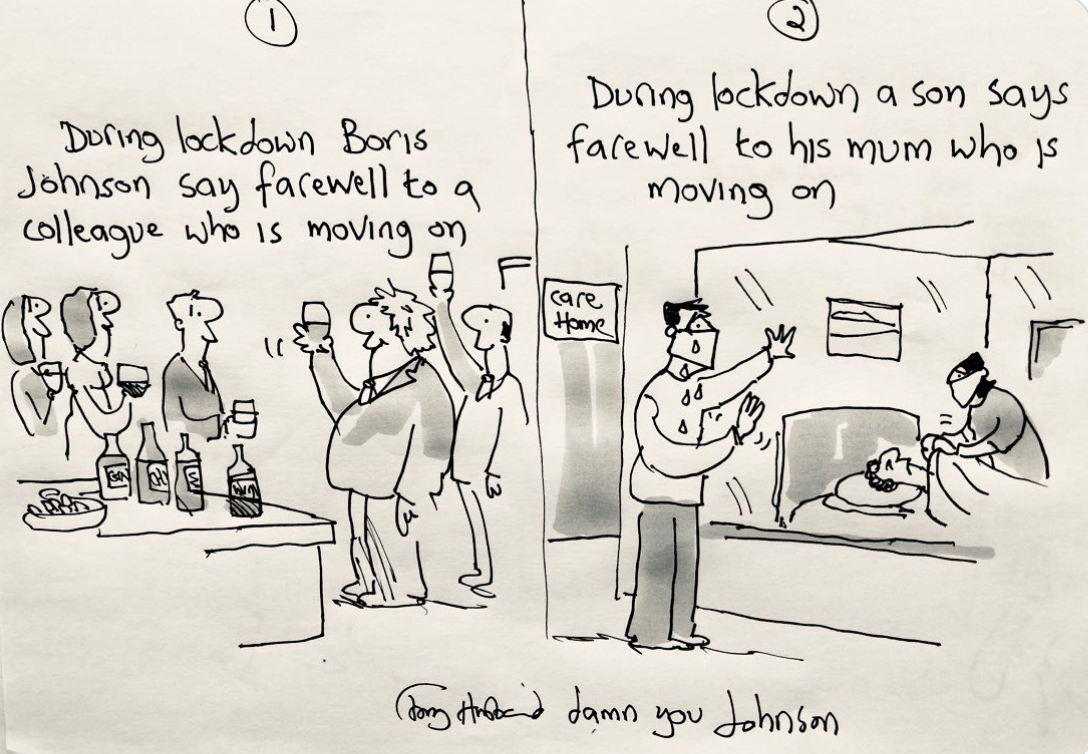 1
During lockdown Boris
Johnson say farewell to a
colleague who is moving on
2
During lockdown a son says
farewell to his mum who is
moving on
care
Home
Tony Husband damn you Johnson